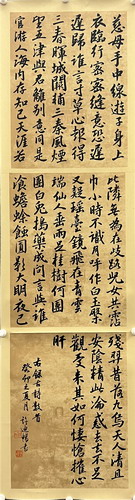 慈母手中線遊子身上
衣臨行密密縫意恐遲
遲歸誰言寸草心報得
三春暉城闕輔三秦風煙
望五津與君離別意同是
宦遊人海內存知己天涯若
比隣無為在歧路兒女共霑
巾小時不識月呼作白玉盤
又疑瑤臺鏡飛在青雲
端仙人垂兩足桂樹何團
團白兔搗藥成問言與誰
飡蟾蜍蝕圓影大明夜已
殘羿昔落九烏天人清且
安陰精此淪惑去去不足
觀憂來其如何悽愴摧心
肝
右錄古詩數首
癸卯之夏月